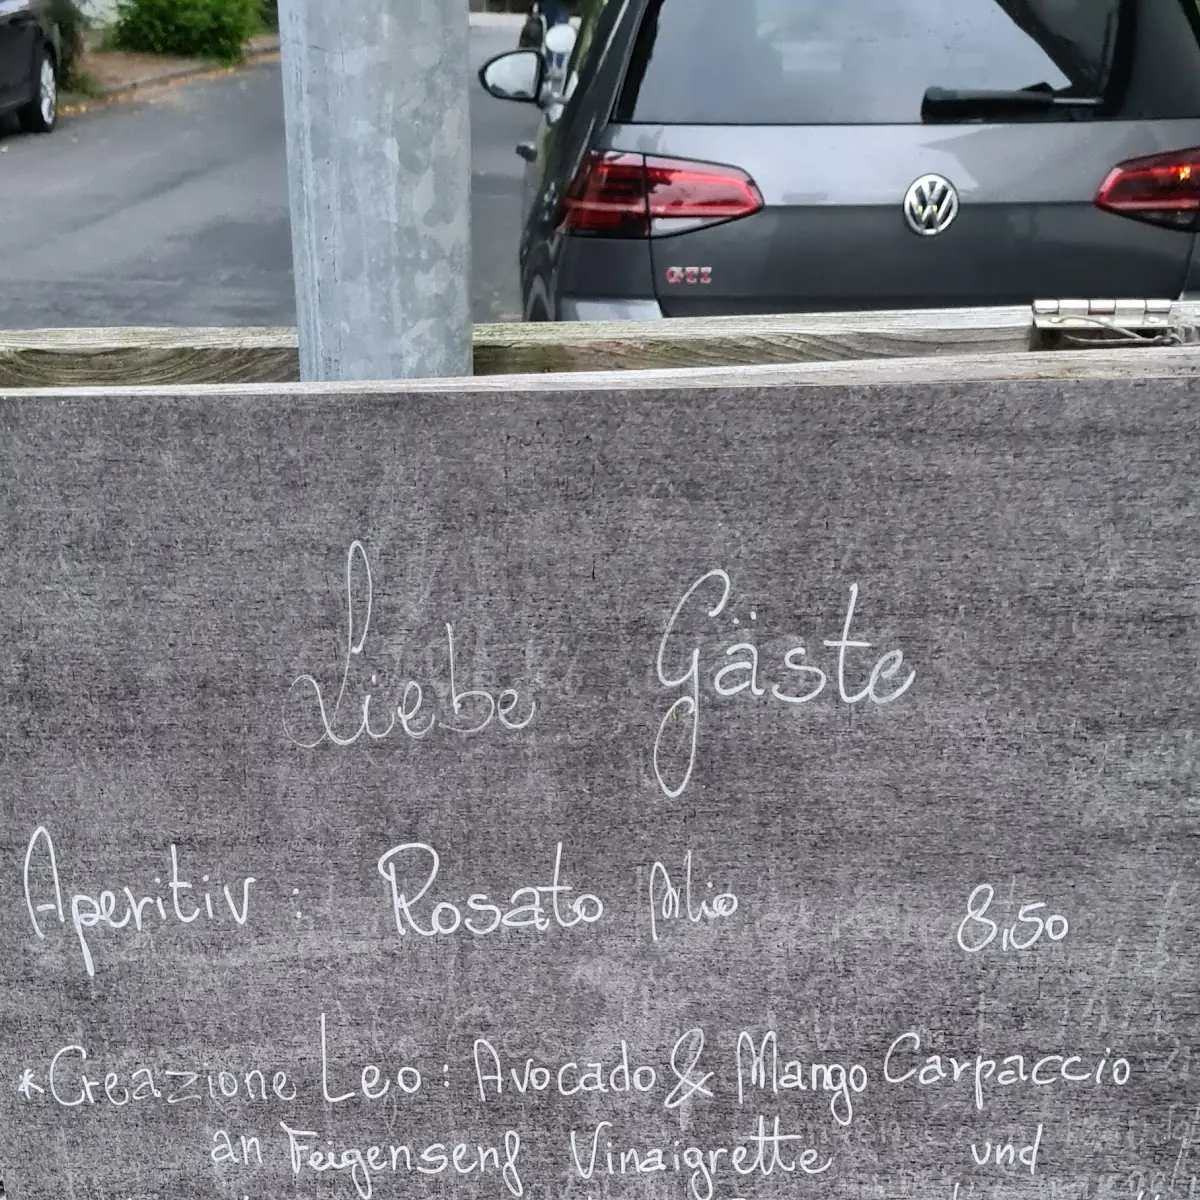 GTI
Liebe Gäste
Aperitiv : Rosato Mio 8,50
*Creazione Leo : Avocado & Mango Carpaccio
an Feigensenf Vinaigrette und